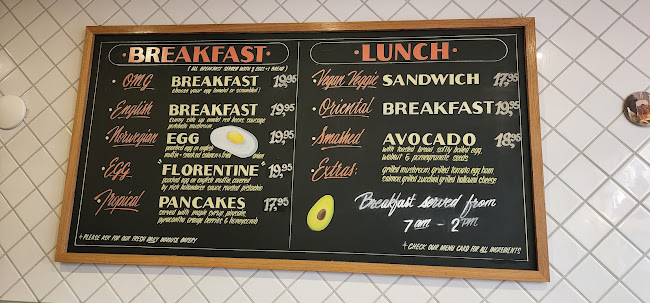 BREAKFAST
(ALL BREAKFAST SERVED WITH 2 EGGS + BREAD)
OMG BREAKFAST 19,95
choose your egg (omelet or scrambled)
English BREAKFAST 19,95
sunny side up omelet, red beans, sausage
portobello mushroom
Norwegian EGG 19,95
poached egg on english
muffin - smoked salmon & fresh onion
Egg FLORENTINE 19,95
poached egg on english muffin, covered
by rich hollandaise sauce, roasted pistachio
Tropical PANCAKES 17,95
served with maple syrup, physalis,
pyracantha orange berries & honeycomb
+ PLEASE ASK FOR OUR FRESH DAILY INHOUSE BAKERY
LUNCH
Vegan Veggie SANDWICH 17,95
Oriental BREAKFAST 19,95
Smashed AVOCADO 18,95
with toasted bread, softly boiled egg,
walnut & pomegranate seeds
Extras: grilled mushroom, grilled tomato, egg, ham
salmon, grilled zucchini, grilled halloumi cheese
Breakfast served from
7am - 2pm
+ CHECK OUR MENU CARD FOR ALL INGREDIENTS